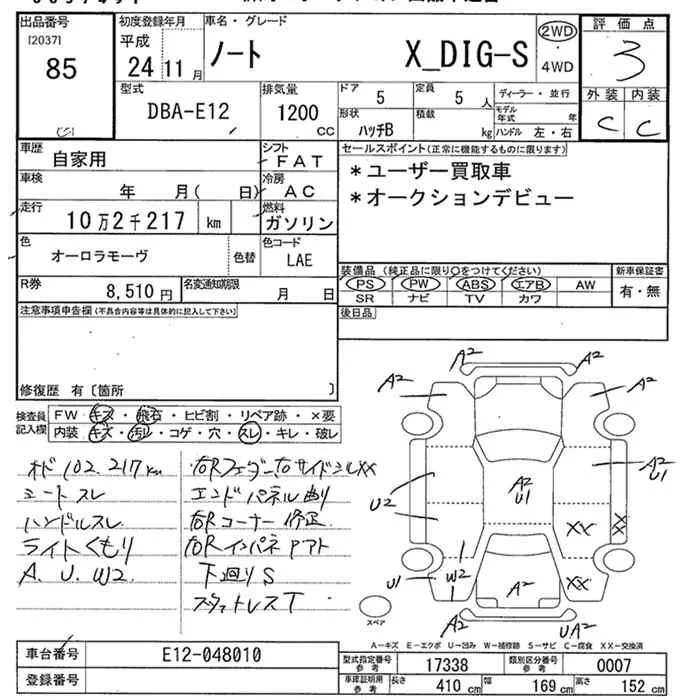 出品番号
[2037]
85
初度登録年月
平成
24 11 月
車名・グレード
ノート X_DIG-S
2WD
4WD
評価点
3
外装 内装
C C
型式
DBA-E12
排気量
1200 CC
ドア
5
定員
5 人
ディーラー・並行
形状
ハッチB
積載
kg
モデル年式 年
ハンドル 左・右
車歴
自家用
シフト
FAT
車検
年 月( 日)
冷房
AC
走行
10万2千217 km
燃料
ガソリン
色
オーロラモーヴ
色替
色コード
LAE
R券
8,510円
名変通知期限
月 日
セールスポイント(正常に機能するものに限ります)
*ユーザー買取車
*オークションデビュー
装備品 (純正品に限り○をつけてください)
PS PW ABS エアB AW
SR ナビ TV カワ
新車保証書
有・無
後日品
注意事項申告欄(不具合内容等は具体的に記入して下さい)
修復歴 有〔箇所 〕
検査員記入欄
FW キズ・飛石・ヒビ割・リペア跡・×要
内装 キズ・汚レ・コゲ・穴・スレ・キレ・破レ
オド 102.217km
シートスレ
ハンドルスレ
ライトくもり
A. U. W2
右Rフェンダー、右サイドシルXX
エンドパネル曲り
右Rコーナー修正
右Rインパネアト
下廻りS
A2
A2
A2
A2
A2 U1
A2 U1
U2
XX
XX
XX
U1
W2
A2
A2
UA2
スペア
A-キズ E-エクボ U-凹み W-補修跡 S-サビ C-腐食 XX-交換済
車台番号
E12-048010
登録番号
型式指定番号 参考
17338
類別区分番号 参考
0007
車庫証明用 参考
長さ 410 cm 幅 169 cm 高さ 152 cm